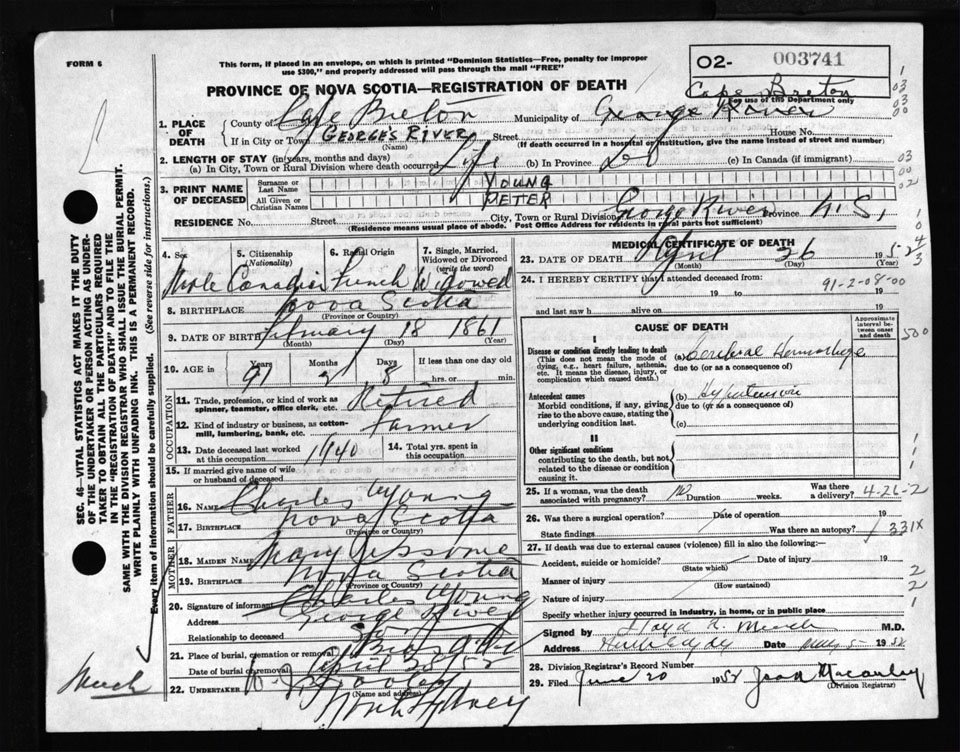 FORM 6
This form, if placed in an envelope, on which is printed "Dominion Statistics—Free, penalty for improper
use $300," and properly addressed will pass through the mail "FREE"
02- 003741
Cape Breton
For use of the Department only
PROVINCE OF NOVA SCOTIA—REGISTRATION OF DEATH
1. PLACE OF DEATH
County of Cape Breton Municipality of George River
If in City or Town GEORGES RIVER Street House No.
(Name) (If death occurred in a hospital or institution, give the name instead of street and number)
2. LENGTH OF STAY (in years, months and days)
(a) In City, Town or Rural Division where death occurred Life (b) In Province Do (c) In Canada (if immigrant)
3. PRINT NAME OF DECEASED
Surname or Last Name YOUNG
All Given or Christian Names PETER
RESIDENCE No. Street City, Town or Rural Division George River Province N.S.
(Residence means usual place of abode. Post Office Address for residents in rural parts not sufficient)
4. Sex 5. Citizenship (Nationality) 6. Racial Origin 7. Single, Married, Widowed or Divorced (write the word)
Male Canadian French Widowed
8. BIRTHPLACE Nova Scotia
(Province or Country)
9. DATE OF BIRTH February 18 1861
(Month) (Day) (Year)
10. AGE in Years Months Days If less than one day old
91 2 8 hrs. or min.
OCCUPATION
11. Trade, profession, or kind of work as spinner, teamster, office clerk, etc. Retired
12. Kind of industry or business, as cotton-mill, lumbering, bank, etc. Farmer
13. Date deceased last worked at this occupation 1940 14. Total yrs. spent in this occupation
15. If married give name of wife or husband of deceased
FATHER
16. NAME Charles Young
17. BIRTHPLACE Nova Scotia
(Province or Country)
MOTHER
18. MAIDEN NAME Mary
19. BIRTHPLACE Nova Scotia
(Province or Country)
20. Signature of informant Charles Young
Address George River
Relationship to deceased Son
21. Place of burial, cremation or removal
Date of burial or removal April 28 52
22. UNDERTAKER
(Name and address)
North Sydney
MEDICAL CERTIFICATE OF DEATH
23. DATE OF DEATH April 26 1952
(Month) (Day) (Year)
24. I HEREBY CERTIFY that I attended deceased from
91-2-08-00
19 to 19
and last saw h alive on 19
CAUSE OF DEATH
Approximate interval between onset and death
I
Disease or condition directly leading to death (a) Cerebral Hemorrhage
(This does not mean the mode of dying, e.g., heart failure, asthenia, etc. It means the disease, injury, or complication which caused death.)
due to (or as a consequence of)
Antecedent causes (b) Hypertension
Morbid conditions, if any, giving rise to the above cause, stating the underlying condition last.
due to (or as a consequence of)
(c)
II
Other significant conditions
contributing to the death, but not related to the disease or condition causing it.
25. If a woman, was the death associated with pregnancy? no Duration weeks. Was there a delivery? 4-26-2
26. Was there a surgical operation? Date of operation 19
State findings Was there an autopsy? 331X
27. If death was due to external causes (violence) fill in also the following:—
Accident, suicide or homicide? Date of injury 19
(State which)
Manner of injury
(How sustained)
Nature of injury
Specify whether injury occurred in industry, in home, or in public place
Signed by M.D.
Address Date May 5- 1952
28. Division Registrar's Record Number
29. Filed June 20 1952
(Division Registrar)
SEC. 46—VITAL STATISTICS ACT MAKES IT THE DUTY
OF THE UNDERTAKER OR PERSON ACTING AS UNDER-
TAKER TO OBTAIN ALL THE PARTICULARS REQUIRED
IN THE "REGISTRATION OF DEATH" AND TO FILE THE
SAME WITH THE DIVISION REGISTRAR WHO SHALL ISSUE THE BURIAL PERMIT.
WRITE PLAINLY WITH UNFADING INK. THIS IS A PERMANENT RECORD.
Every item of information should be carefully supplied. (See reverse side for instructions.)